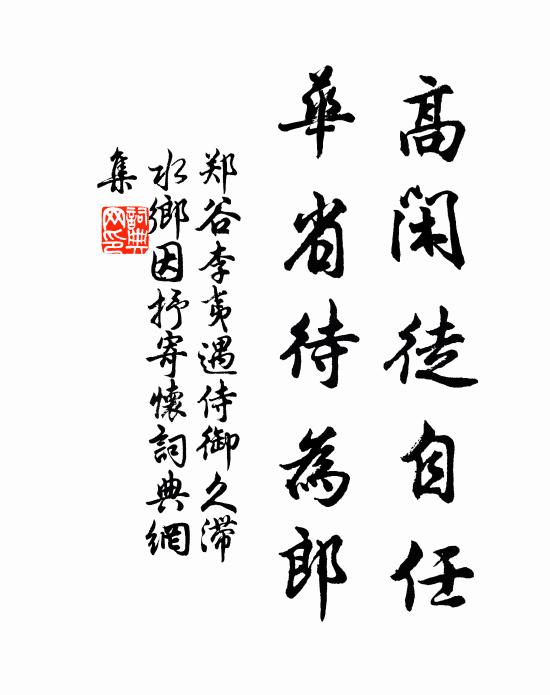 高閑徒自任
華省待為郎
郑谷李夷遇侍御久滞
水鄉因抒寄懷詞典網
集
詞典
网印